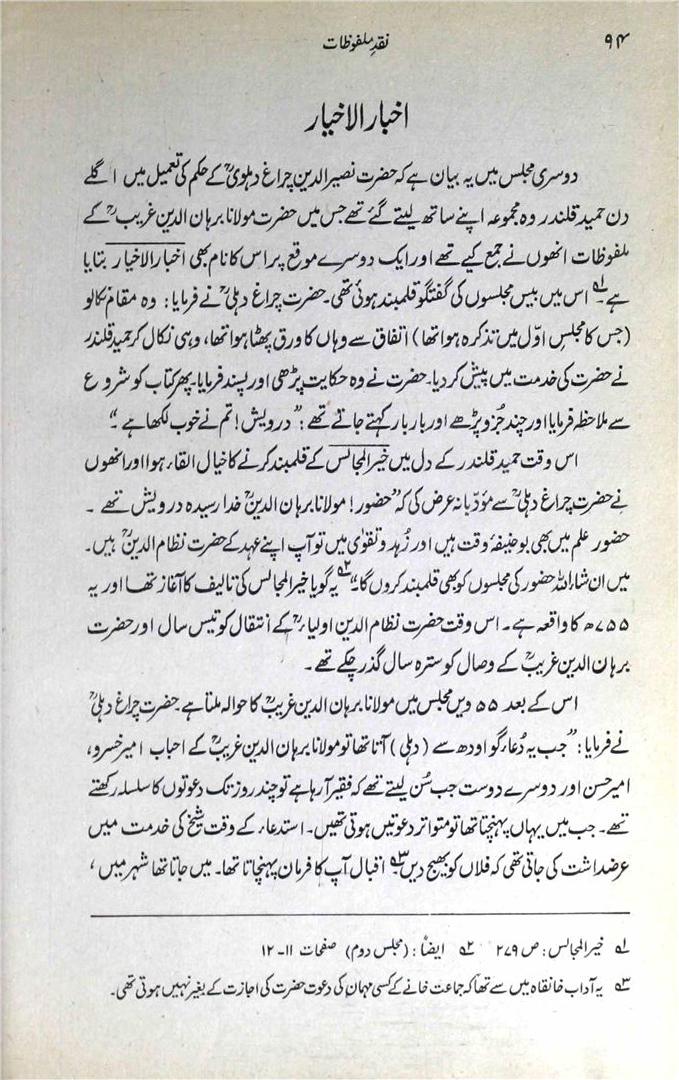 ۹۴
نقدِ ملفوظات
اخبار الاخیار
دوسری مجلس میں یہ بیان ہے کہ حضرت نصیر الدین چراغ دہلویؒ کے حکم کی تعمیل میں اگلے
دن حمید قلندر وہ مجموعہ اپنے ساتھ لیتے گئے تھے جس میں حضرت مولانا برہان الدین غریبؒ کے
ملفوظات انھوں نے جمع کیے تھے اور ایک دوسرے موقع پر اس کا نام بھی اخبار الاخیار بتایا
ہے۔؎۱ اس میں بیس مجلسوں کی گفتگو قلمبند ہوئی تھی۔ حضرت چراغ دہلیؒ نے فرمایا: وہ مقام نکالو
(جس کا مجلسِ اوّل میں تذکرہ ہوا تھا) اتفاق سے وہاں کا ورق پھٹا ہوا تھا، وہی نکال کر حمید قلندر
نے حضرت کی خدمت میں پیش کر دیا۔ حضرت نے وہ حکایت پڑھی اور پسند فرمایا۔ پھر کتاب کو شروع
سے ملاحظہ فرمایا اور چند جُزو پڑھے اور بار بار کہتے جاتے تھے: ”درویش! تم نے خوب لکھا ہے۔“
اس وقت حمید قلندر کے دل میں خیرالمجالس کے قلمبند کرنے کا خیال القاء ہوا اور انھوں
نے حضرت چراغ دہلیؒ سے مؤدّبانہ عرض کی کہ ”حضور! مولانا برہان الدینؒ خدا رسیدہ درویش تھے۔
حضور علم میں بھی بوحنیفۂ وقت ہیں اور زُہد و تقویٰ میں تو آپ اپنے عہد کے حضرت نظام الدینؒ ہیں۔
میں ان شاء اللہ حضور کی مجلسوں کو بھی قلمبند کروں گا۔“؎۲ یہ گویا خیرالمجالس کی تالیف کا آغاز تھا اور یہ
۷۵۵ھ کا واقعہ ہے۔ اس وقت حضرت نظام الدین اولیاءؒ کے انتقال کو تیس سال اور حضرت
برہان الدین غریبؒ کے وصال کو سترہ سال گذر چکے تھے۔
اس کے بعد ۵۵ ویں مجلس میں مولانا برہان الدین غریبؒ کا حوالہ ملتا ہے۔ حضرت چراغ دہلیؒ
نے فرمایا: ”جب یہ دُعاء گو اودھ سے (دہلی) آتا تھا تو مولانا برہان الدین غریبؒ کے احباب امیر خسرو،
امیر حسن اور دوسرے دوست جب سُن لیتے تھے کہ فقیر آرہا ہے تو چند روز تک دعوتوں کا سلسلہ رکھتے
تھے۔ جب میں یہاں پہنچتا تھا تو متواتر دعوتیں ہوتی تھیں۔ استدعاء کے وقت شیخ کی خدمت میں
عرضداشت کی جاتی تھی کہ فلاں کو بھیج دیں؎۳ اقبال آپ کا فرمان پہنچاتا تھا۔ میں جاتا تھا شہر میں،
؎۱ خیر المجالس: ص ۲۷۹ ؎۲ ایضاً: (مجلس دوم) صفحات ۱۱-۱۲
؎۳ یہ آداب خانقاہ میں سے تھا کہ جماعت خانے کے کسی مہمان کی دعوت حضرت کی اجازت کے بغیر نہیں ہوتی تھی۔